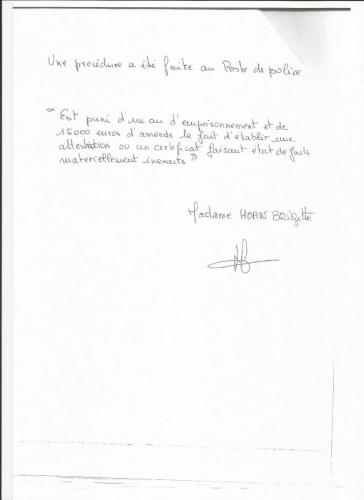 Une procédure a été faite au Poste de police.
" Est puni d'un an d'emprisonnement et de
15000 euros d'amende le fait d'établir une
attestation ou un certificat faisant état de faits
matériellement inexacts »
Madame HORN BRIGITTE